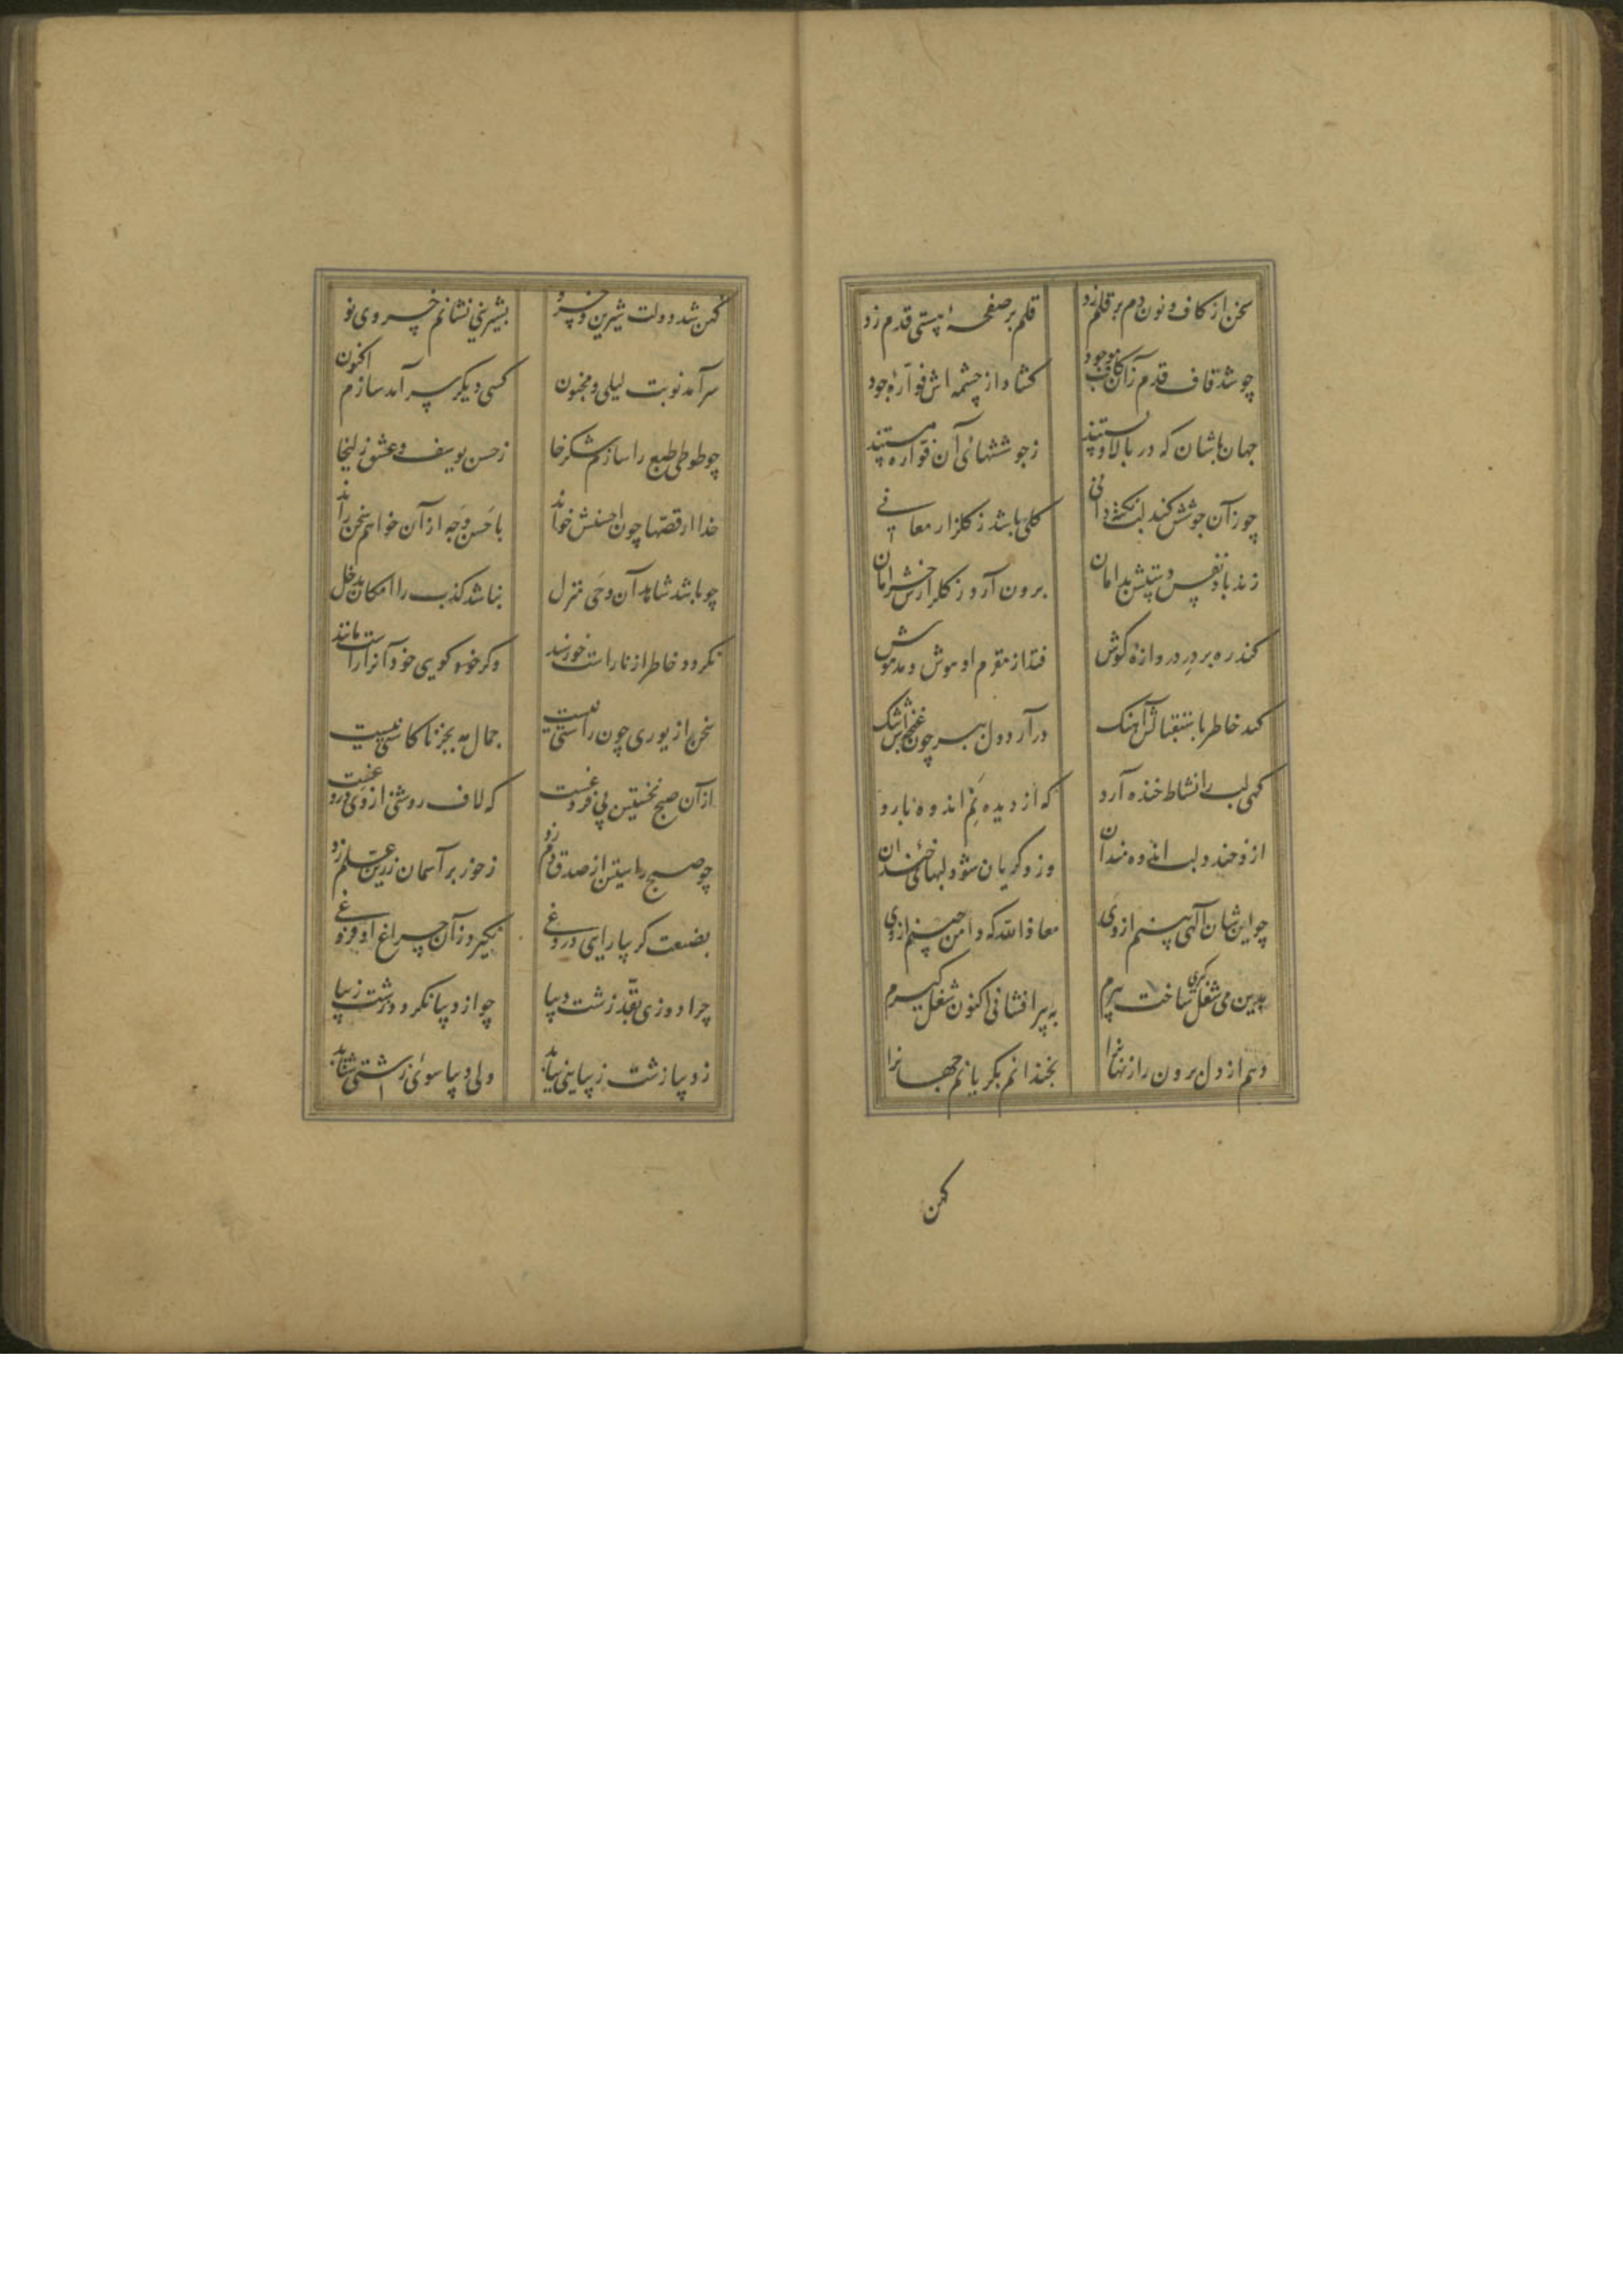 سخن از کاف و نون دم بر قلم زد
قلم بر صفحهٔ هستی قدم زد
چو شد قاف قدم زان کاف موجود
کشاد از چشمه اش فوارهٔ جود
جهان باشان که در بالا و پستند
ز جوششهائی آن فواره هستند
چو زان جوشش کند لب نکته دانی
کلی باشد ز کلزار معانی
زند باد نفس دستش بدامان
برون آرد ز کلزارش خرامان
کند ره بر در دروازهٔ کوش
فتد از مقدم او هوش و مدهوش
کند خاطر باستقبالش آهنک
در آرد دل ببر چون غنچه اش تنک
کهی لب را نشاط خنده آرد
که از دیده نم اندوه بارد
ازو خندد لب اندوه مندان
وزو کریان شود لبهای خندان
چو این شان آلهی بینم از وی
معاذ الله که دامن چینم از وی
بدین می شغل کیری ساخت پیرم
به پیر افشانی اکنون شغل کیرم
دهم از دل برون راز نهانرا
بخندانم بکریانم جهانرا
کهن
کهن شد دولت شیرین و خسرو
بشیرینی نشانم خسروی نو
سر آمد نوبت لیلی و مجنون
کسی دیکر سر آمد سازم اکنون
چو طوطی طبع را سازم شکرخا
ز حسن یوسف و عشق زلیخا
خدا از قصها چون احسنش خواند
باحسن وجه از آن خواهم سخن راند
چو باشد شاهد آن وحی منزل
نباشد کذب را امکان مدخل
نکردد خاطر از ناراست خورسند
وکر خود کویی خود آنرا راست مانند
سخن را زیوری چون راستی نیست
جمال مه بجز ناکاستی نیست
از آن صبح نخستین بی فروغست
که لاف روشنی از وی دروغست
چو صبح راستین از صدق دم زد
ز خور بر آسمان زرین علم زد
بضعت کر بیارایی دروغی
نکیرد زان چراغ او فروغی
چرا دوزی بقد زشت دیبا
چو از دیبا نکردد زشت زیبا
ز دیبا زشت زیبایی نیابد
ولی دیبا سوی زشتی شتابد